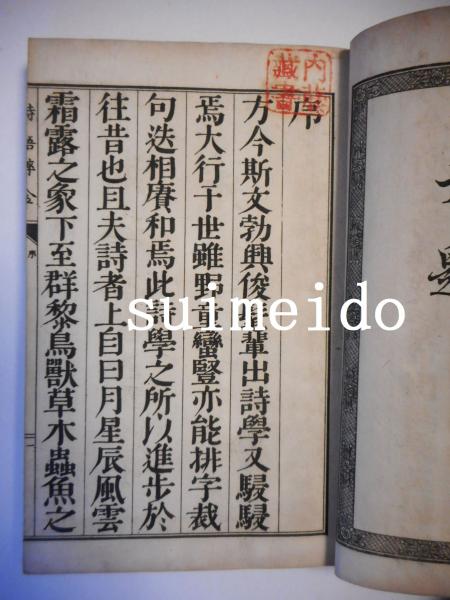 序
方今斯文勃興俊髦輩出詩學又駸駸
焉大行于世雖野童蠻豎亦能排字裁
句迭相賡和焉此詩學之所以進步於
往昔也且夫詩者上自日月星辰風雲
霜露之象下至群黎鳥獸草木蟲魚之
詩語碎金
序
藏書
suimeido